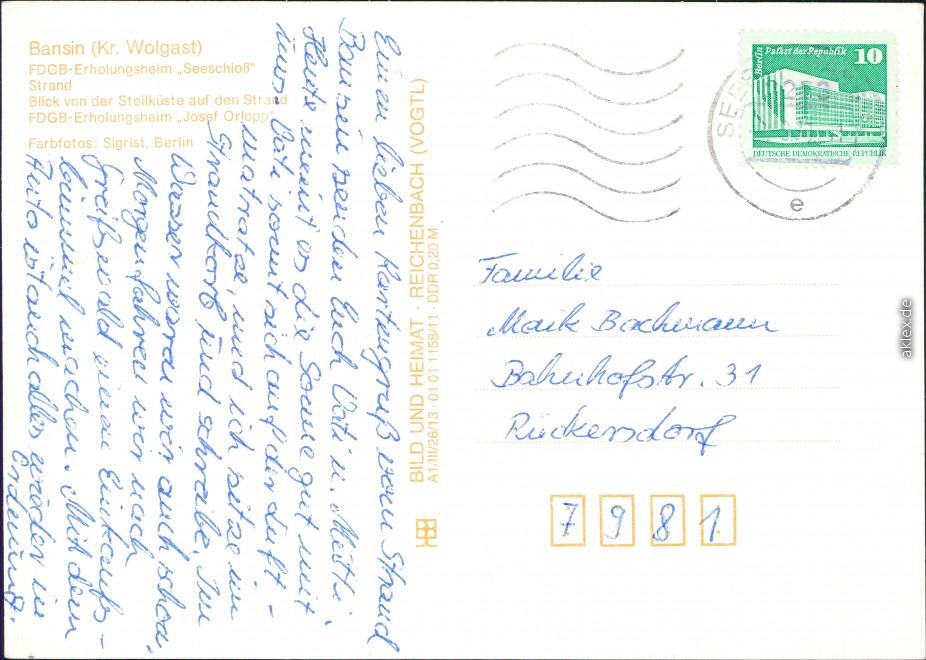 Bansin (Kr. Wolgast)
FDGB-Erholungsheim „Seeschloß“
Strand
Blick von der Steilküste auf den Strand
FDGB-Erholungsheim „Josef Orlopp“
Farbfotos: Sigrist, Berlin
Einen lieben Kartengruß vom Strand
Bansin senden Euch Vati u. Mutti.
Heute meint es die Sonne gut mit
uns. Vati sonnt sich auf der Luft-
matratze, und ich sitze im
Strandkorb und schreibe. Im
Wasser waren wir auch schon.
Morgen fahren wir nach
Greifswald einen Einkaufs-
bummel machen. Mit dem
Auto ist auch alles wieder in
Ordnung.
BILD UND HEIMAT · REICHENBACH (VOGTL)
A1/III/26/13-01 01 1158/11 · DDR 0,20 M
Berlin Palast der Republik 10
DEUTSCHE DEMOKRATISCHE REPUBLIK
e
Familie
Maik Bachmann
Bahnhofstr. 31
Rückersdorf
7981
aklex.de